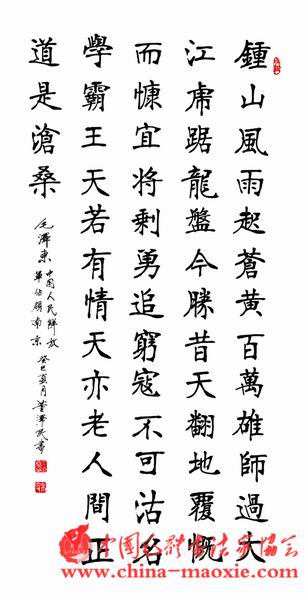 鍾山風雨起蒼黃百萬雄師過大
江虎踞龍盤今勝昔天翻地覆慨
而慷宜將剩勇追窮寇不可沽名
學霸王天若有情天亦老人間正
道是滄桑
毛澤東
中國人民解放
軍佔領南京
癸巳夏月
www.china-maoxie.com